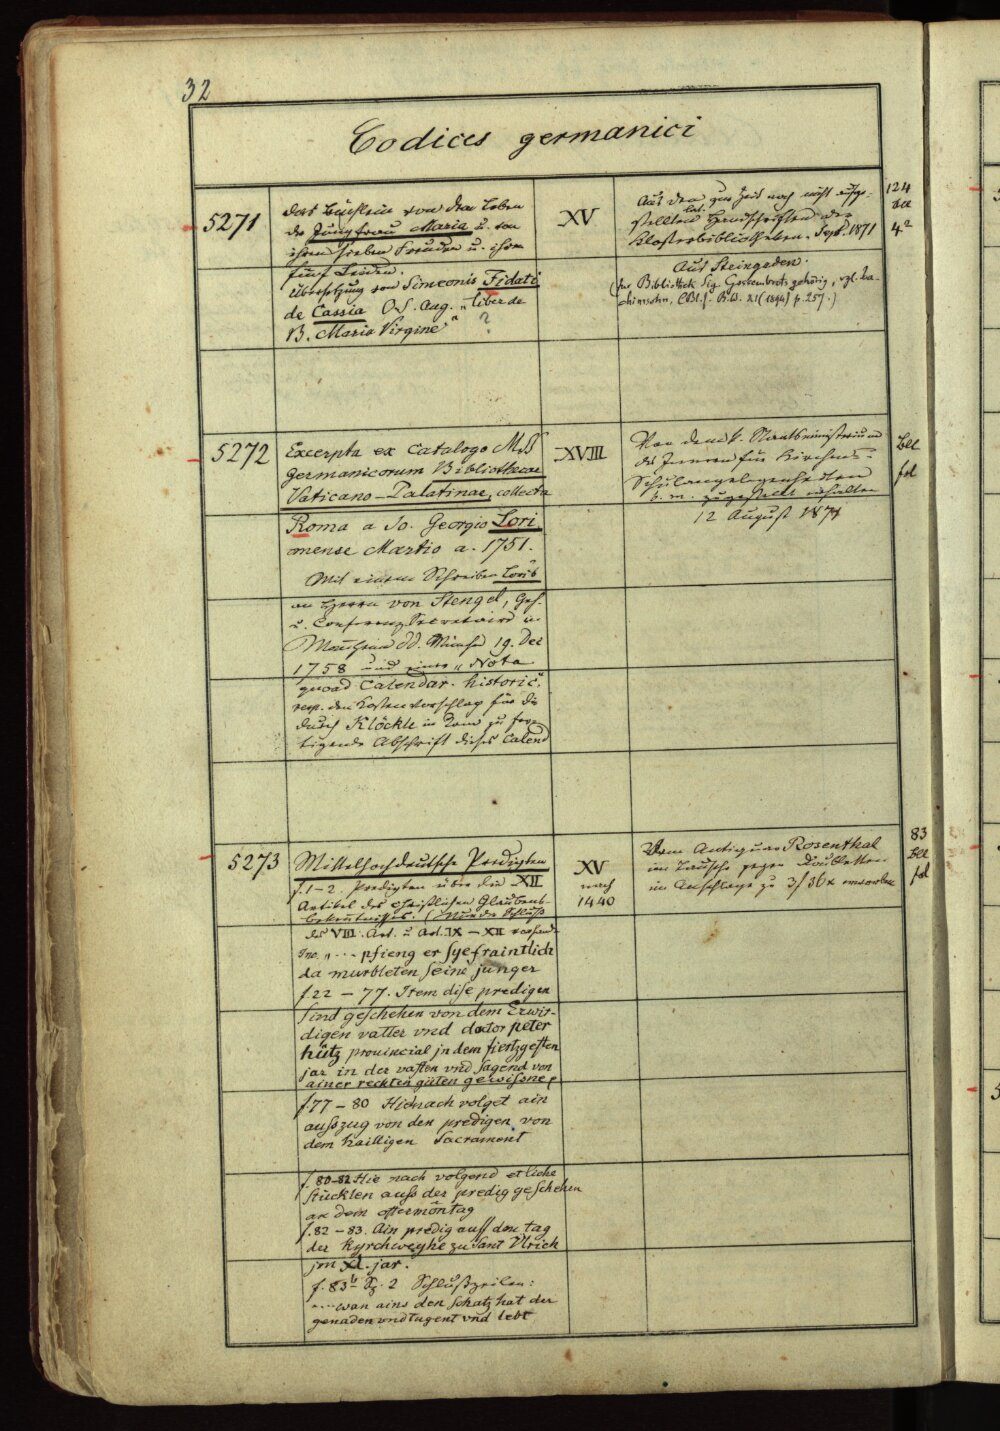 32
Codices germanici
5271
Das Büchlein von dem Leben
der Jungfrau Maria u. von
ihren sieben Freuden u. ihren
fünf Leiden.
Übersetzung von Simeonis Fidati
de Cassia O. S. Aug. „liber de
B. Maria Virgine“ ?
XV
Aus den zur Zeit noch nicht aufge-
stellten lat. Handschriften der
Klosterbibliotheken. Sept. 1871
Aus Steingaden.
(zur Bibliothek Sig. Gossembrots gehörig, vgl. Joa-
chimsohn, CBl. f. B.W. XI (1894) p. 257.)
124
Bll
4º
5272
Excerpta ex Catalogo MSS
germanicorum Bibliothecae
Vaticano-Palatinae, collecta
Roma a Jo. Georgio Lori
mense Martio a. 1751.
Mit einem Schreiben Lori's
an Herrn von Stengel, Geh.
u. Conferenz-Secretaire in
Mannheim dd. München 19. Dec
1758 und einer „Nota
quoad Calendar. historic.“
resp. den Kostenvorschlag für die
durch Klöckle in Rom zu fer-
tigende Abschrift dieses Calend
XVIII
Von dem k. Staatsministerium
des Innern für Kirchen- u.
Schulangelegenheiten
b. m. zugestellt erhalten
12 August 1871
Bll
fol
5273
Mittelhochdeutsche Predigten
f. 1-2. Predigten über die XII
Artikel des christlichen Glaubens-
bekenntnisses. (Nur der Schluß
des VIII. Art. u. Art. IX - XII vorhand.
Inc. „... pfieng er sy efraintlich
da murbleten seine junger
f. 22 - 77. Item dise predigen
sind geschehen von dem Erwir-
digen vatter vnd doctor peter
hütz prouincial jn dem fiertzgesten
jar in der vasten vnd sagend von
ainer rechten güten gewissne
f. 77 - 80 Hienach volget ain
auszug von den predigen von
dem hailligen Sacrament
f. 80-82 Hie nach volgend etliche
stücklen auss der predig geschehen
an dem aftermöntag
f. 82 - 83. Ain predig auff den tag
der kyrchweyhe zu Sant Vlrich
jm XL. jar.
f. 83b Sp. 2 Schlußzeilen:
....wan ains den schatz hat der
genaden vnd tugent vnd lebt
XV
nach
1440
Vom Antiquar Rosenthal
im Tausche gegen Doubletten
im Anschlage zu 3 f 36 x erworben
83
Bll
fol